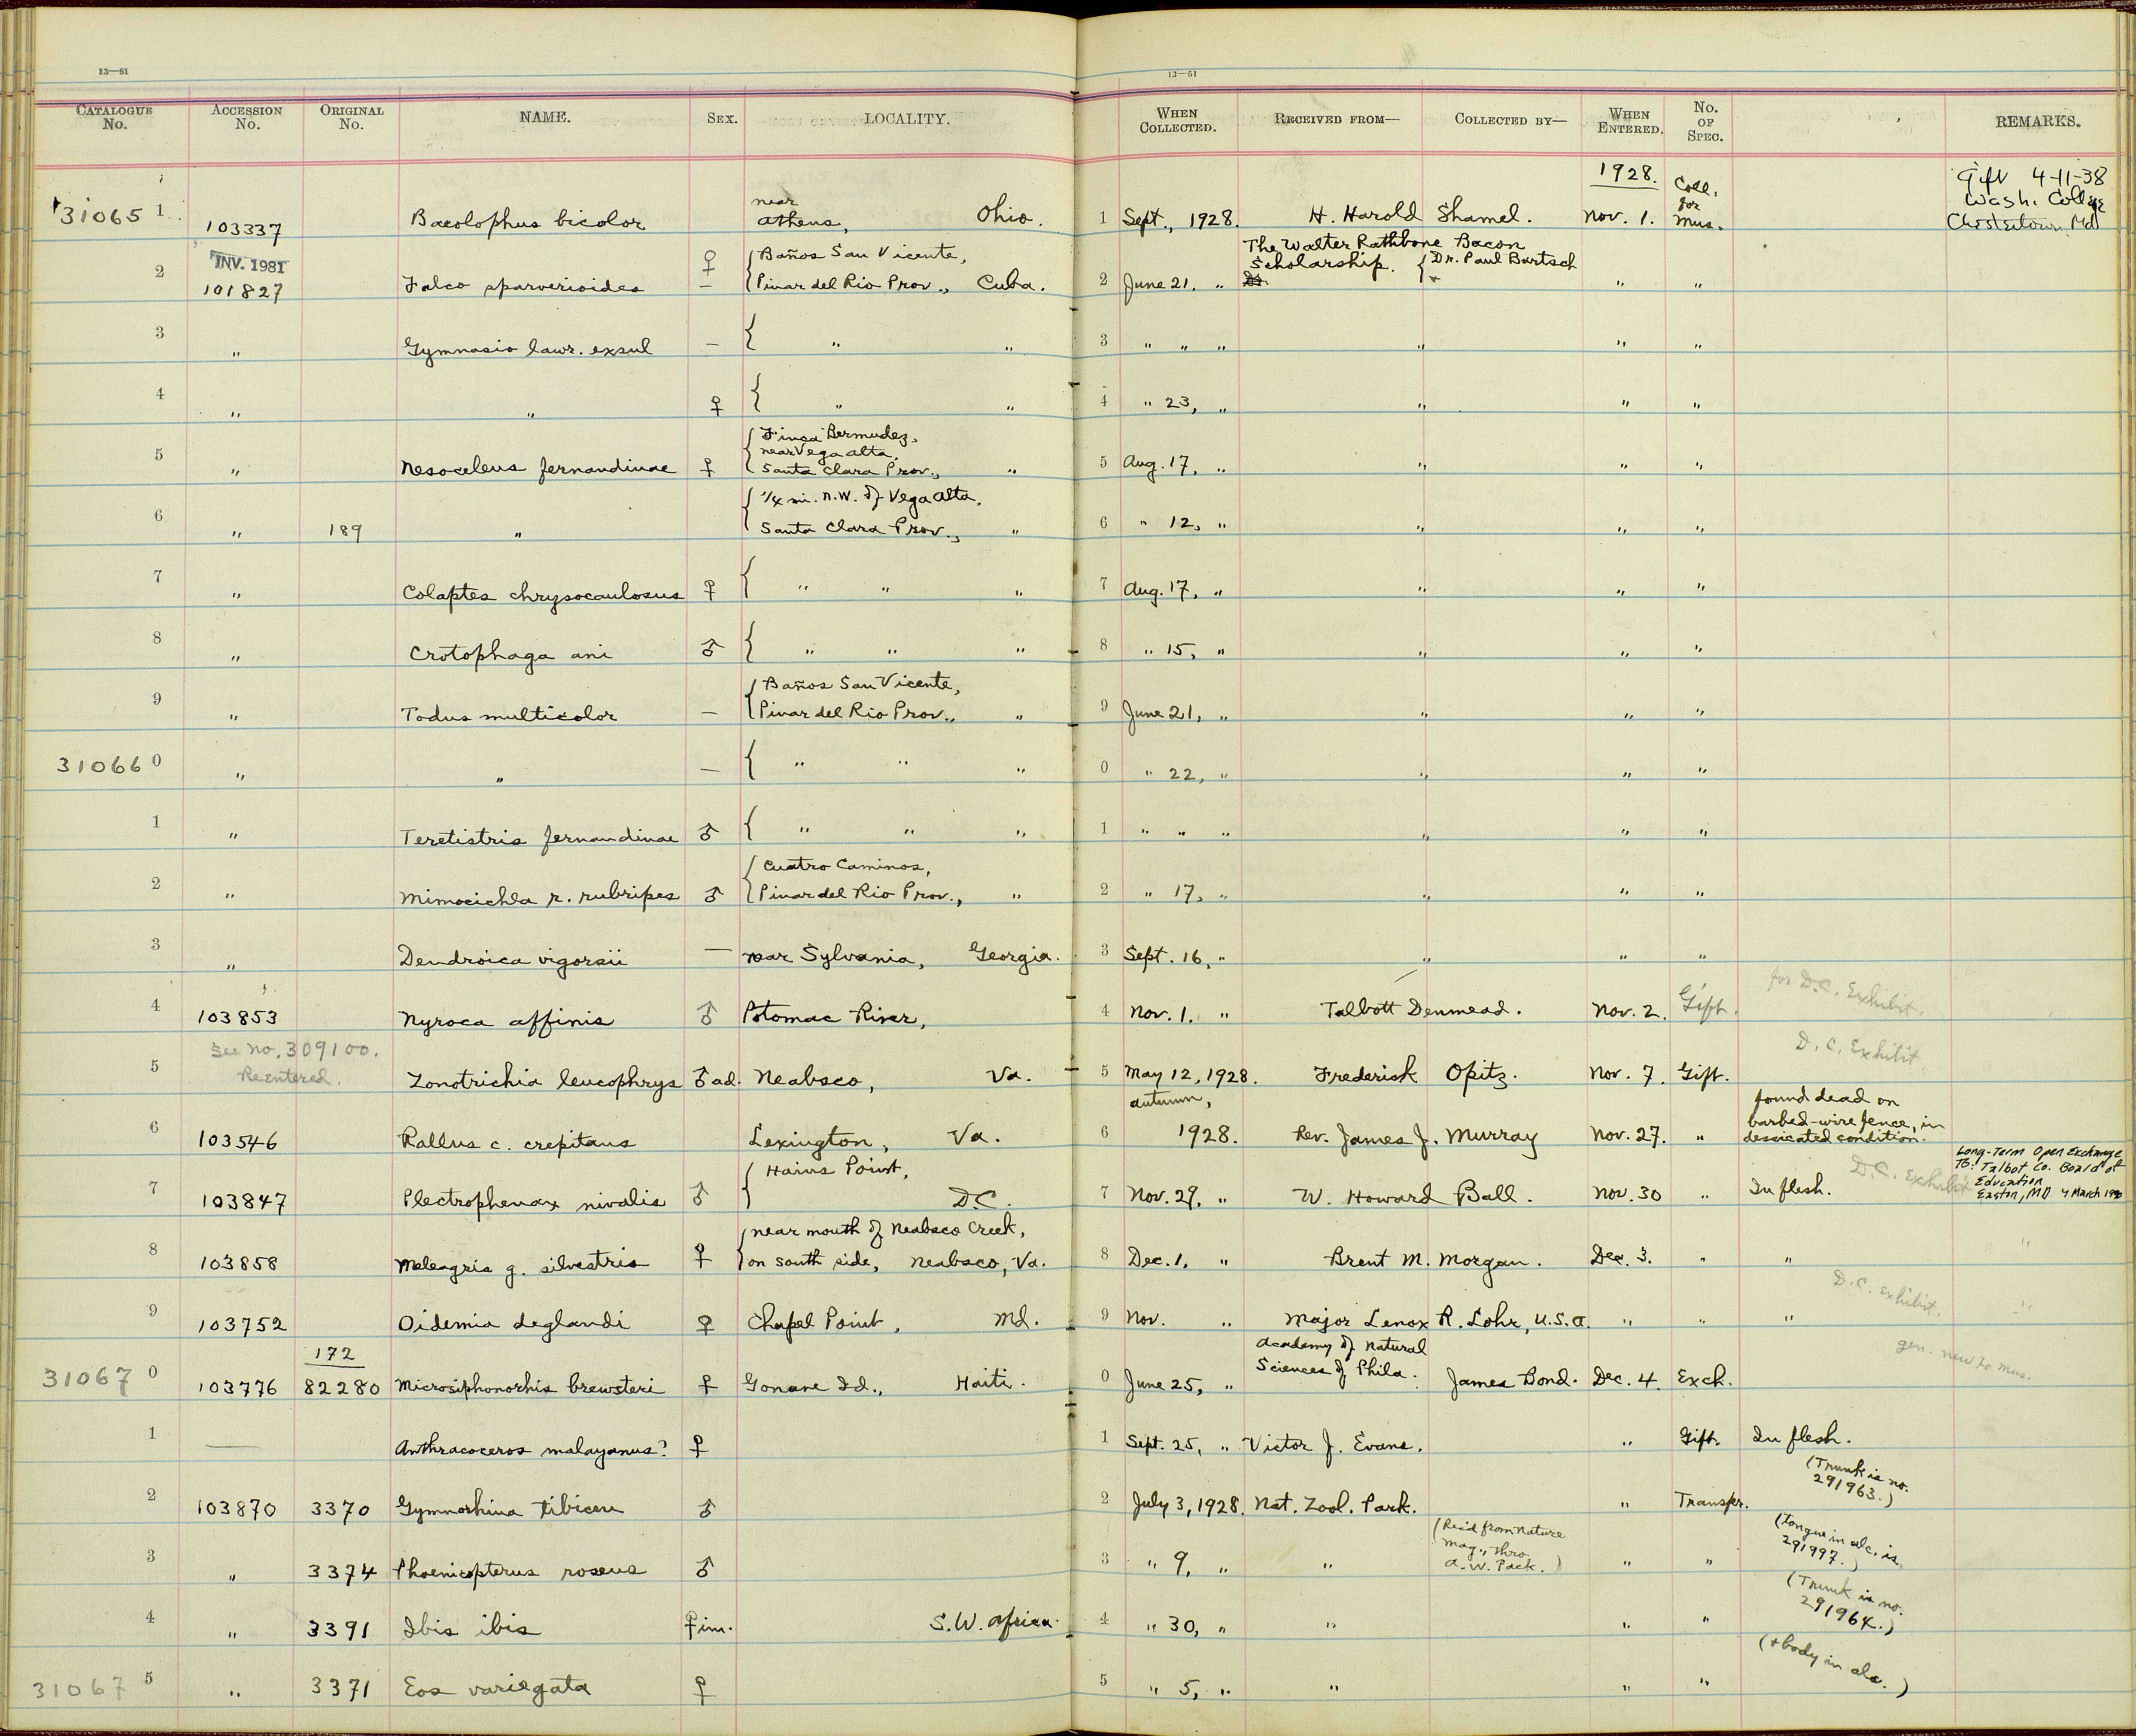 13—51
13—51
CATALOGUE No. ACCESSION No. ORIGINAL No. NAME. SEX. LOCALITY. WHEN COLLECTED. RECEIVED FROM— COLLECTED BY— WHEN ENTERED. No. OF SPEC. REMARKS.
1928.
Gift 4-11-38
Wash. College
Chestertown Md
31065 1 103337 Baeolophus bicolor near Athens, Ohio. 1 Sept., 1928. H. Harold Shamel. Nov. 1. Coll. for Mus.
INV. 1981
2 101827 Falco sparverioides ♀ — { Baños San Vicente, Pinar del Rio Prov., Cuba. 2 June 21. " The Walter Rathbone Bacon Scholarship. { Dr. Paul Bartsch " "
3 " Gymnasio lawr. exsul — { " " 3 " " " " " "
4 " " ♀ { " " 4 " 23, " " " "
5 " Nesoceleus fernandinae ♀ { Finca Bermudez, near Vega Alta, Santa Clara Prov., " 5 Aug. 17, " " " "
6 " 189 " { 1/4 mi. N.W. of Vega Alta, Santa Clara Prov., " 6 " 12, " " " "
7 " Colaptes chrysocaulosus ♀ { " " " 7 Aug. 17, " " " "
8 " Crotophaga ani ♂ { " " " 8 " 15, " " " "
9 " Todus multicolor — { Baños San Vicente, Pinar del Rio Prov., " 9 June 21, " " " "
31066 0 " " — { " " " 0 " 22, " " " "
1 " Teretistris fernandinae ♂ { " " " 1 " " " " " "
2 " Mimocichla r. rubripes ♂ { Cuatro Caminos, Pinar del Rio Prov., " 2 " 17, " " " "
3 " Dendroica vigorsii — near Sylvania, Georgia. 3 Sept. 16, " " " "
4 103853 Nyroca affinis ♂ Potomac River, 4 Nov. 1. " Talbott Denmead. Nov. 2. Gift. for D.C. Exhibit.
See No. 309100.
Reentered.
5 Zonotrichia leucophrys ♂ ad. Neabsco, Va. 5 May 12, 1928. Frederick Opitz. Nov. 7. Gift. D.C. Exhibit
6 103546 Rallus c. crepitans Lexington, Va. 6 autumn, 1928. Rev. James J. Murray Nov. 27. " found dead on barbed-wire fence, in dessicated condition.
7 103847 Plectrophenax nivalis ♂ { Hains Point, D.C. 7 Nov. 29, " W. Howard Ball. Nov. 30 " In flesh. D.C. exhibit
Long-Term Open Exchange
To: Talbot Co. Board of
Education
Easton, MD 4 March 1990
8 103858 Meleagris g. silvestris ♀ { near mouth of Neabsco Creek, on south side, Neabsco, Va. 8 Dec. 1, " Brent M. Morgan. Dec. 3. " " "
9 103752 Oidemia deglandi ♀ Chapel Point, Md. 9 Nov. " Major Lenox R. Lohr, U.S.A. " " " D.C. exhibit. "
172
31067 0 103776 82280 Microsiphonorhis brewsteri ♀ Gonave Id., Haiti. 0 June 25, " Academy of Natural Sciences of Phila. James Bond. Dec. 4. Exch. gen. new to mus.
1 — Anthracoceros malayanus? ♀ 1 Sept. 25, " Victor J. Evans. " Gift. In flesh.
2 103870 3370 Gymnorhina tibicen ♂ 2 July 3, 1928. Nat. Zool. Park. " Transfer. (Trunk is no. 291963.)
3 " 3374 Phoenicopterus roseus ♂ 3 " 9, " " (Rec'd from Nature Mag., thro A.W. Pack.) " " (tongue in alc. is 291997.)
4 " 3391 Ibis ibis ♀ im. S.W. Africa. 4 " 30, " " " " (Trunk is no. 291964.)
31067 5 " 3371 Eos variegata ♀ 5 " 5, " " " " (+ body in alc.)